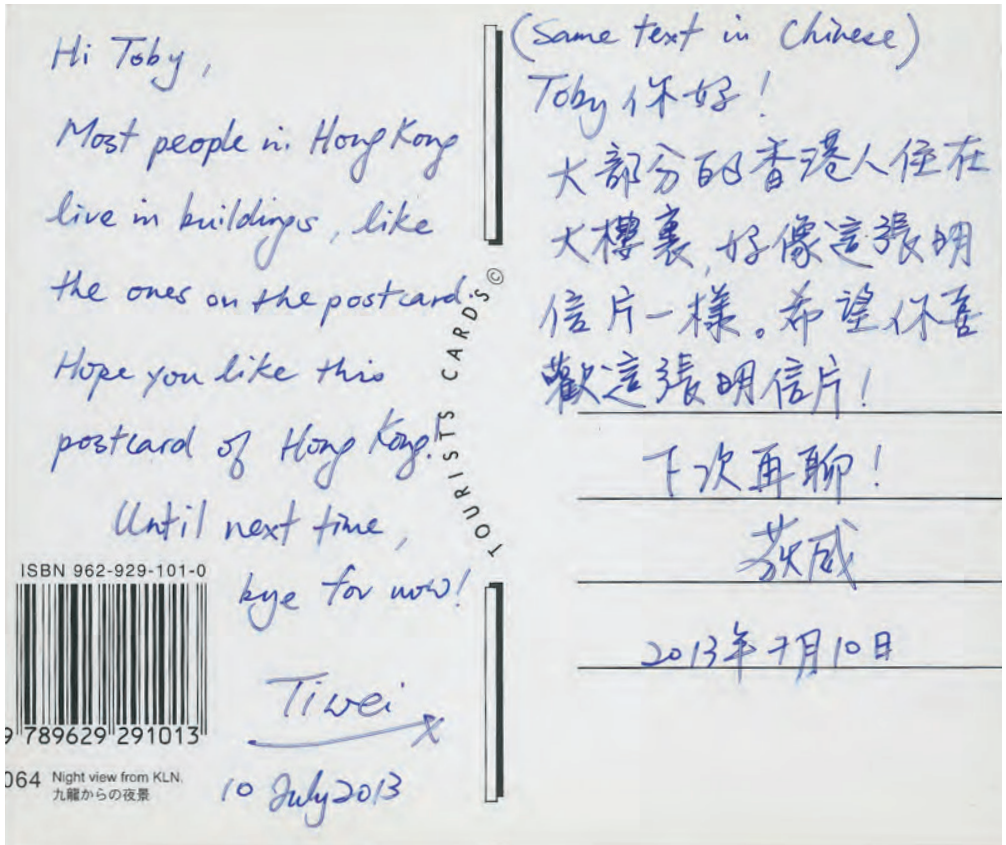 Hi Toby,
Most people in Hong Kong
live in buildings, like
the ones on the postcard.
Hope you like this
postcard of Hong Kong!
Until next time,
bye for now!
Tiwei
x
10 July 2013
ISBN 962-929-101-0
9 789629 291013
064 Night view from KLN.
九龍からの夜景
TOURISTS CARD'S ©
(Same text in Chinese)
Toby 你好!
大部分的香港人住在
大樓裏,好像這張明
信片一樣。希望你喜
歡這張明信片!
下次再聊!
荻威
2013年7月10日